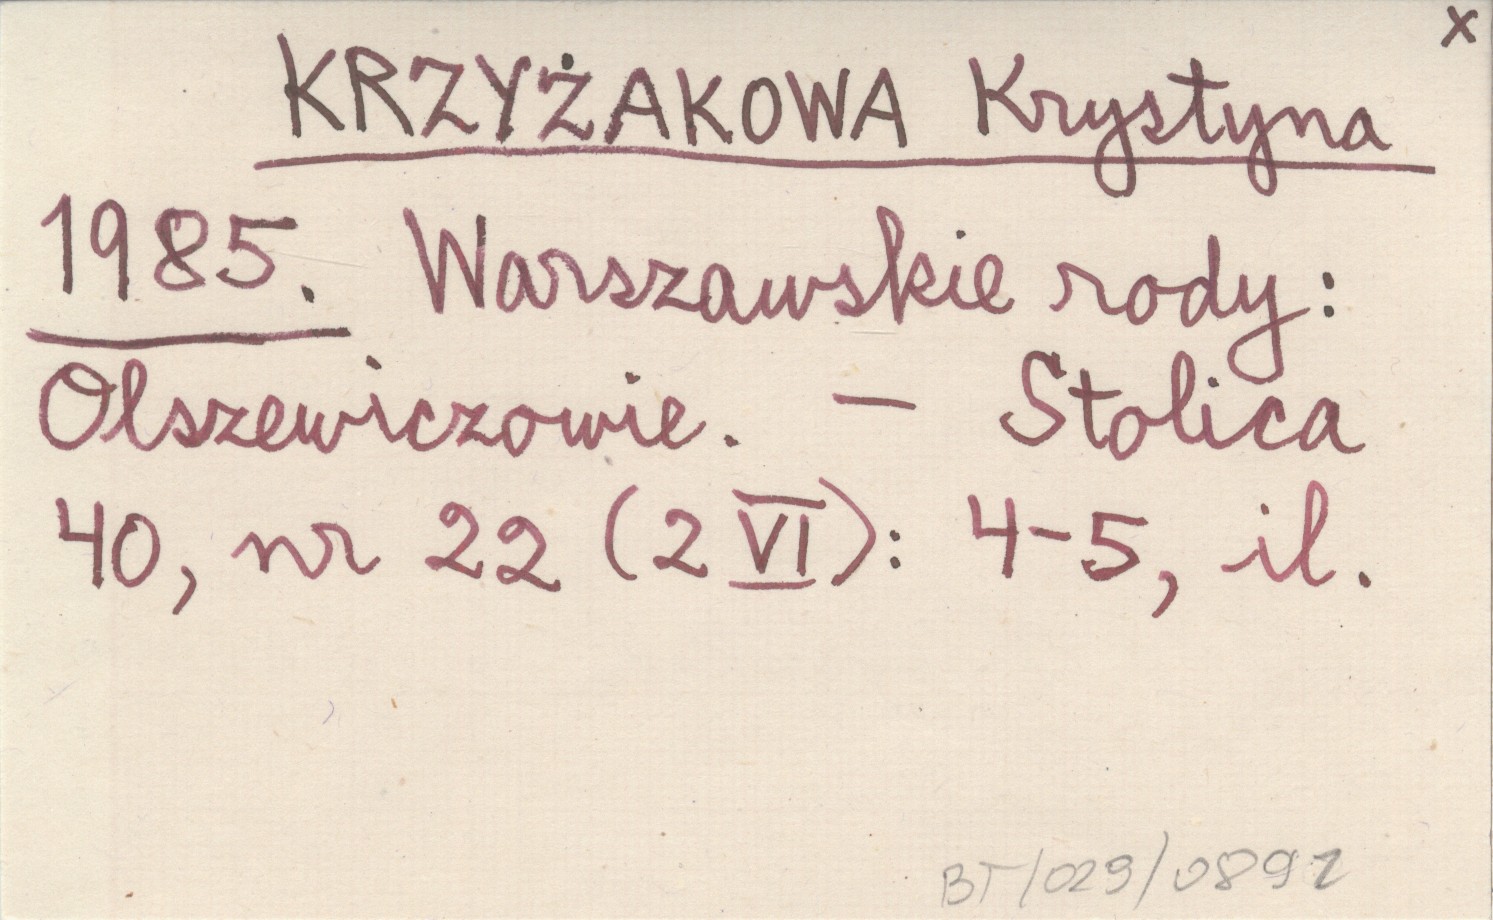 x
KRZYŻAKOWA Krystyna
1985. Warszawskie rody:
Olszewiczowie. — Stolica
40, nr 22 (2 VI): 4-5, il.
BT/029/0891